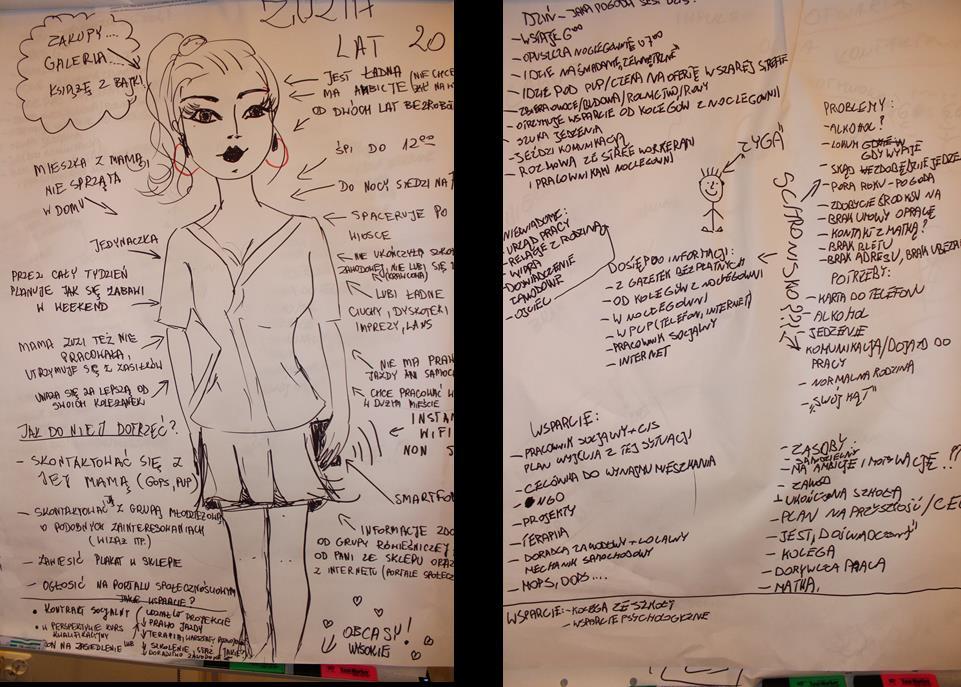 ZUZIA
LAT 20
ZAKUPY...
GALERIA...
KSIĄŻĘ Z BAJKI
JEST ŁADNA (NIE CHCE
MA AMBICJE
OD DWÓCH LAT BEZROBO
ŚPI DO 12⁰⁰
DO NOCY SIEDZI NA
SPACERUJE PO
WIOSCE
NIE UKOŃCZYŁA SZKO
ZAWODOWEJ, NIE LUBI SIĘ
LUBI ŁADNE
CIUCHY, DYSKOTEKI
IMPREZY, LANS
NIE MA PRAW
JAZDY ANI SAMOC
CHCE PRACOWAĆ W
DUŻYM MIEŚCIE
INSTA
WIFI
NON
SMARTFO
INFORMACJE
OD GRUPY RÓWIEŚNICZEJ
OD PANI ZE SKLEPU ORAZ
Z INTERNETU (PORTALE SPOŁECZ
OBCASY!
WYSOKIE
MIESZKA Z MAMĄ,
NIE SPRZĄTA
W DOMU
JEDYNACZKA
PRZEZ CAŁY TYDZIEŃ
PLANUJE JAK SIĘ ZABAWI
W WEEKEND
MAMA ZUZI TEŻ NIE
PRACOWAŁA,
UTRZYMUJE SIĘ Z ZASIŁKÓW
UWAŻA SIĘ ZA LEPSZĄ OD
SWOICH KOLEŻANEK
JAK DO NIEJ DOTRZEĆ?
- SKONTAKTOWAĆ SIĘ Z
JEJ MAMĄ (GOPS, PUP)
- SKONTAKTOWAĆ JĄ Z GRUPĄ MŁODZIEŻOWĄ
O PODOBNYCH ZAINTERESOWANIACH
(WIZAŻ ITP.)
- ZAWIESIĆ PLAKAT W SKLEPIE
- OGŁOSIĆ NA PORTALU SPOŁECZNOŚCIOWYM
JAKIE WSPARCIE?
• KONTRAKT SOCJALNY
UDZIAŁ W PROJEKCIE
PRAWO JAZDY
• W PERSPEKTYWIE KURS
KWALIFIKACYJNY
TERAPIA, WARSZTATY
LUB
SZKOLENIE, STAŻ (JAKIE?)
DORADZTWO ZAWODOWE
BON NA ZASIEDLENIE
DZIEŃ - JAKA POGODA JEST DZIŚ?
- WSTAJE 6⁰⁰
- OPUSZCZA NOCLEGOWNIĘ O 7⁰⁰
- IDZIE NA ŚNIADANIE „ZEWNĘTRZNE"
- IDZIE POD PUP/CZEKA NA OFERTĘ W SZAREJ STREFIE
- ZBIERA OWOCE/BUDOWA/ROLNICTWO/ROWY
- OTRZYMUJE WSPARCIE OD KOLEGÓW Z NOCLEGOWNI
- SZUKA JEDZENIA
- JEŹDZI KOMUNIKACJĄ
- ROZMOWA ZE STREETWORKEREM
I PRACOWNIKAMI NOCLEGOWNI
„ZYGA"
SCHRONISKO
NIEWIADOME:
- URZĄD PRACY
- RELACJE Z RODZINĄ
- WIARA
- DOŚWIADCZENIE
ZAWODOWE
- OJCIEC
DOSTĘP DO INFORMACJI:
- Z GAZETEK BEZPŁATNYCH
- OD KOLEGÓW Z NOCLEGOWNI
- W NOCLEGOWNI
- W PUP (TELEFON, INTERNET)
- PRACOWNIK SOCJALNY
- INTERNET
PROBLEMY:
- ALKOHOL?
- LOKUM
GDY WYPIJE
- SKĄD
- PORA ROKU - POGODA
- ZDOBYCIE ŚRODKÓW NA
- BRAK UMOWY O PRACĘ
- KONTAKT Z MATKĄ?
- BRAK BILETU
- BRAK ADRESU, BRAK
POTRZEBY:
- KARTA DO TELEFONU
- ALKOHOL
- JEDZENIE
- KOMUNIKACJA/DOJAZD DO
PRACY
- NORMALNA RODZINA
- „SWÓJ KĄT"
WSPARCIE:
- PRACOWNIK SOCJALNY + CIS
PLAN WYJŚCIA Z TEJ SYTUACJI
- CELÓWKA DO WYNAJMU MIESZKANIA
- NGO
- PROJEKTY
- TERAPIA
- DORADCA ZAWODOWY + LOKALNY
MECHANIK SAMOCHODOWY
- MOPS, DOPS....
- ZASOBY:
- SAMODZIELNY
- MA AMBICJE I MOTYWACJĘ..??
- ZAWÓD
- UKOŃCZONA SZKOŁA
- PLAN NA PRZYSZŁOŚĆ/CEL
- JEST „DOŚWIADCZONY"
- KOLEGA
- DORYWCZA PRACA
- MATKA,
WSPARCIE: - KOLEGA ZE SZKOŁY
- WSPARCIE PSYCHOLOGICZNE